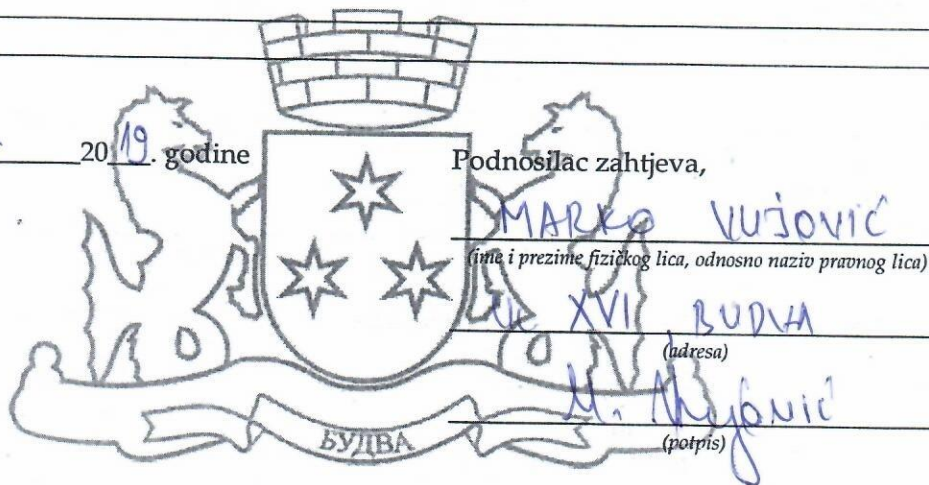 20 19. godine
Podnosilac zahtjeva,
MARKO VUJOVIĆ
(ime i prezime fizičkog lica, odnosno naziv pravnog lica)
XVI BUDVA
(adresa)
M. Vujović
(potpis)
БУДВА